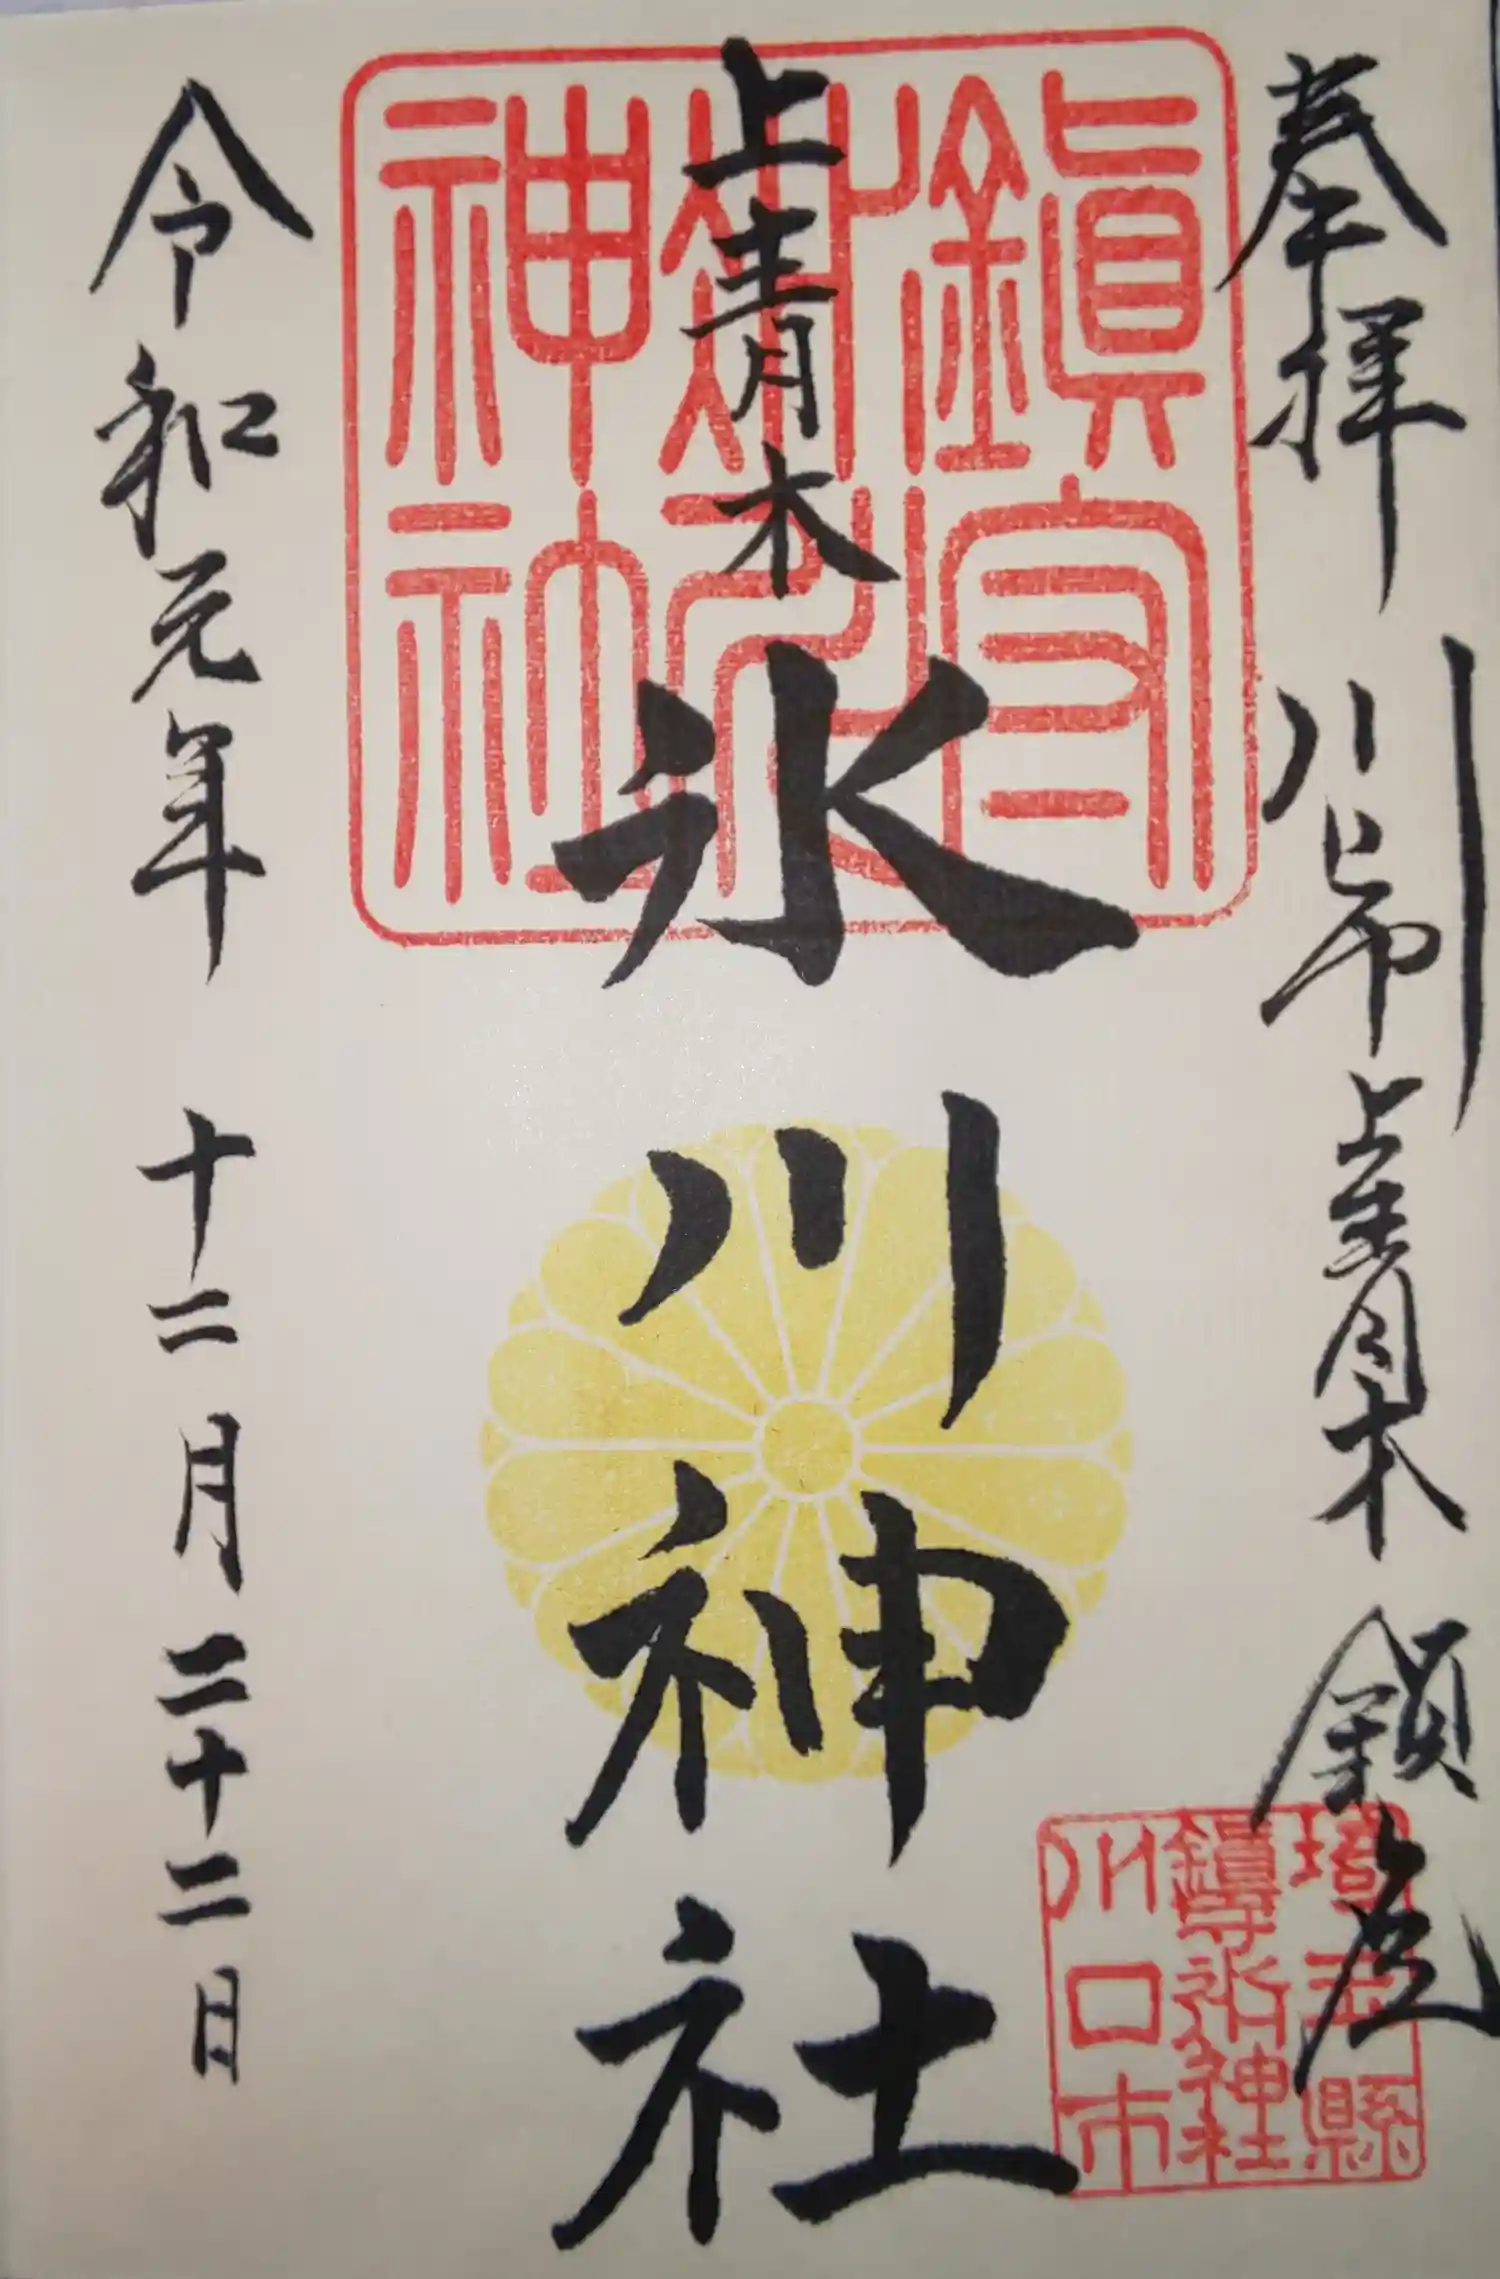 奉拝 川口市上青木 鎮座
上青木
氷川神社
令和元年 十二月 二十二日
鎮守
神社
埼玉縣
鎮守氷川神社
川口市